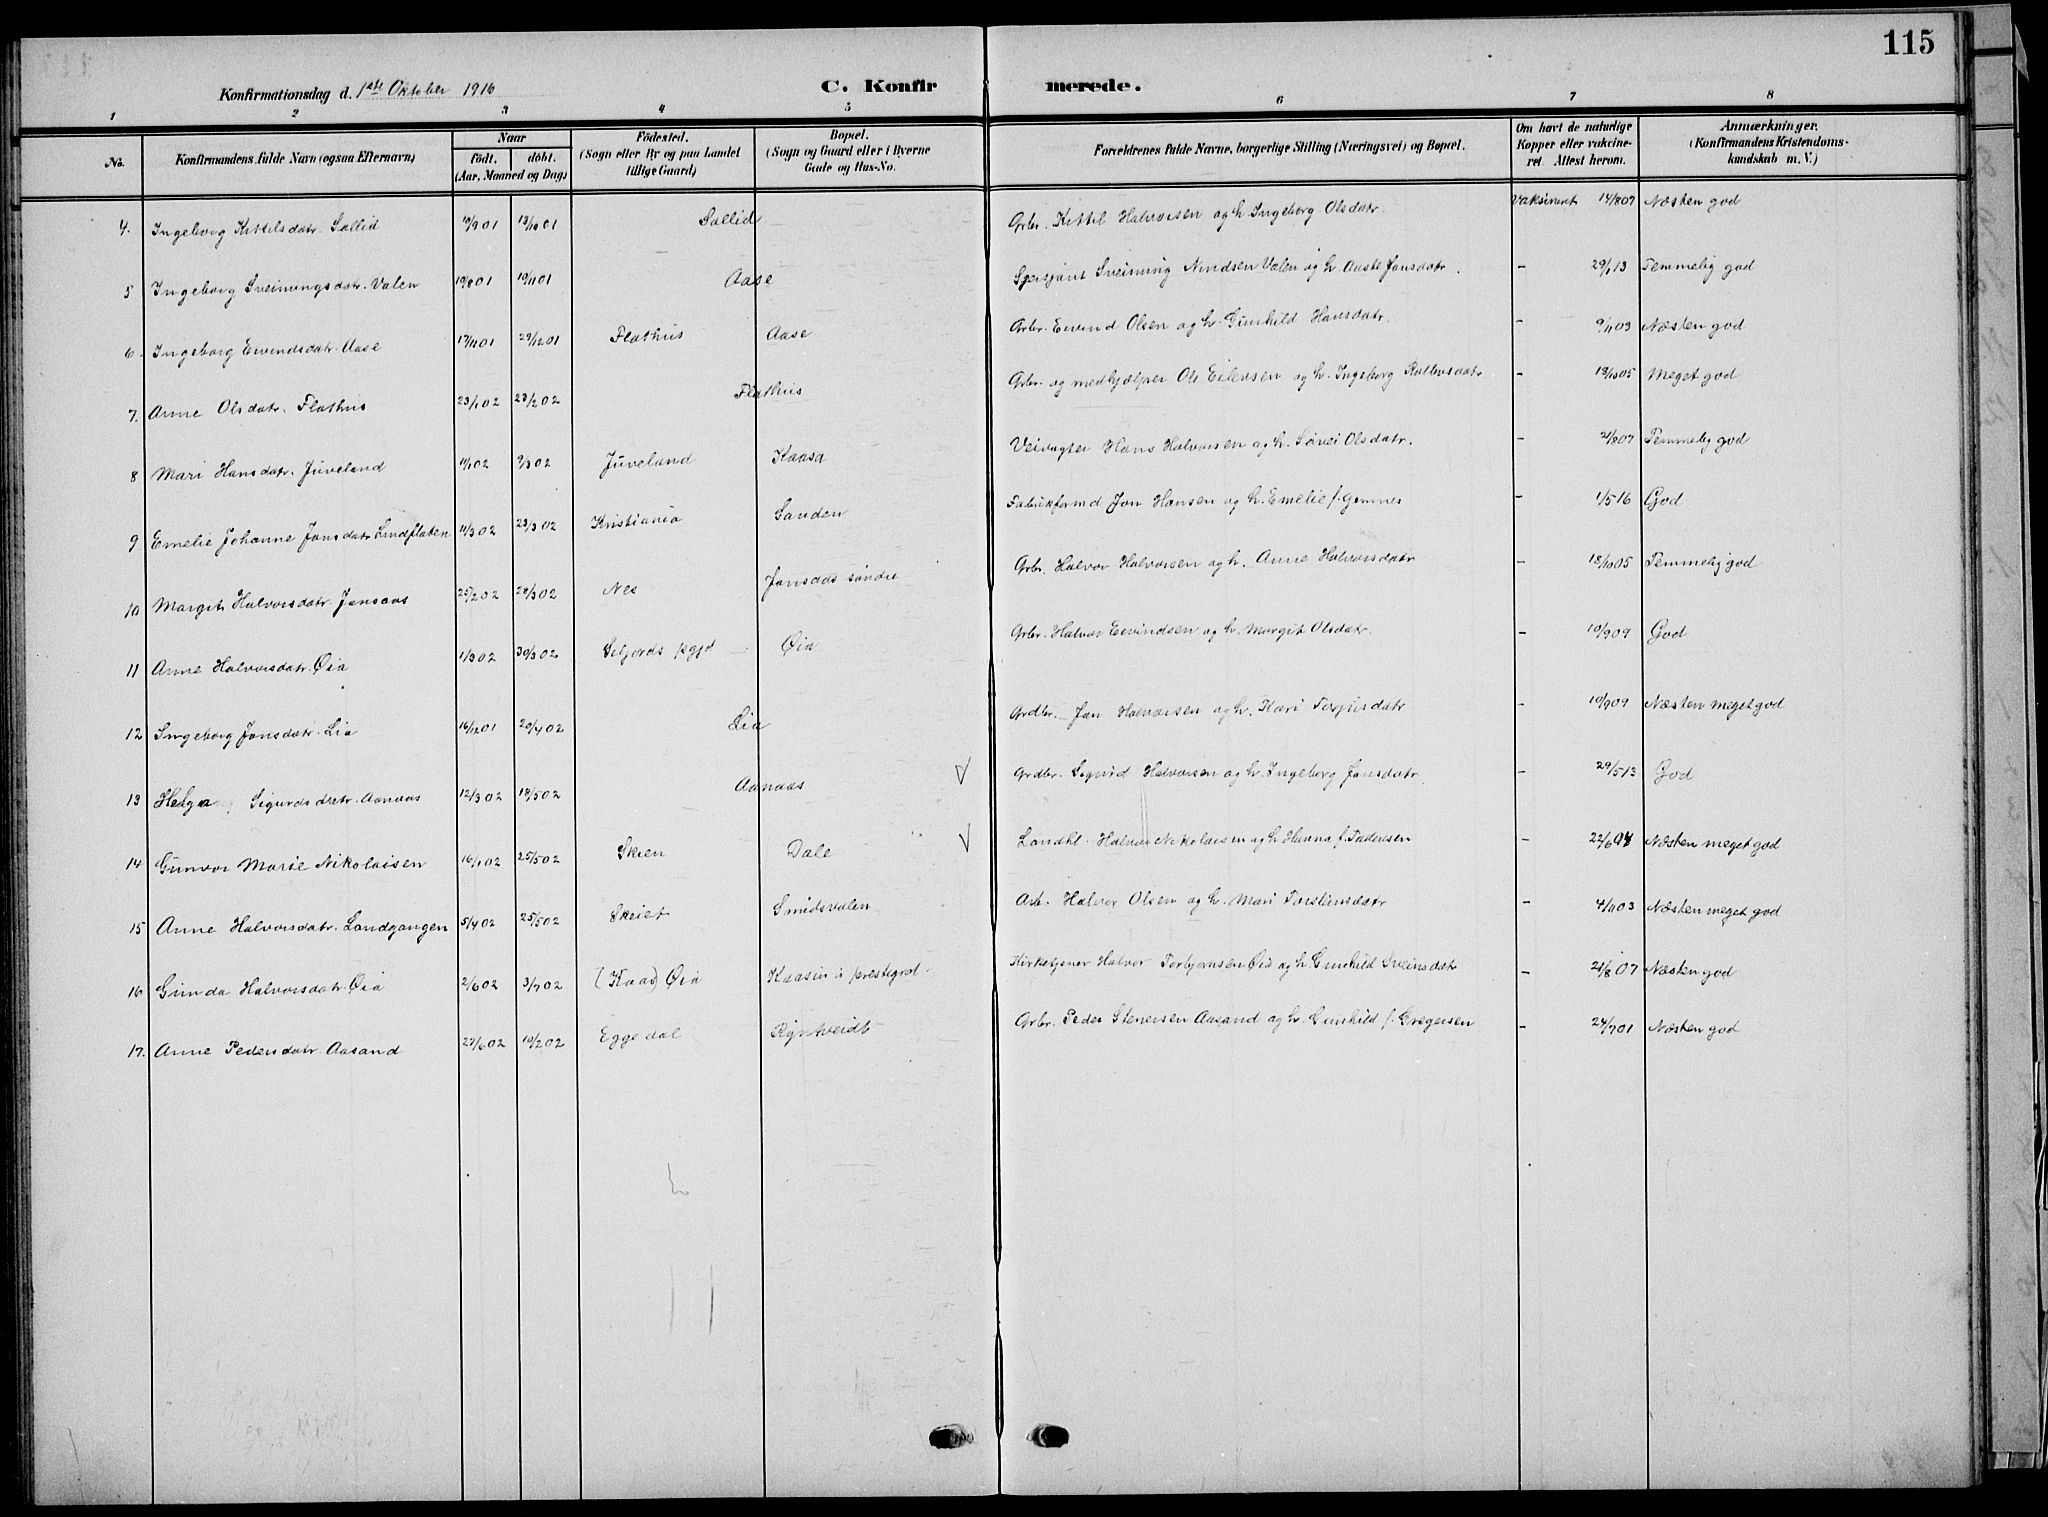 115
Konfirmationsdag d. 1ste Oktober 1916 C. Konfir merede.
1 2 3 4 5 6 7 8
No. Konfirmandens fulde Navn (ogsaa Efternavn) Naar födt. döbt. (Aar, Maaned og Dag) Födested. (Sogn eller By og paa Landet tillige Gaard) Bopæl. (Sogn og Gaard eller i Byerne Gade og Hus-No. Forældrenes fulde Navne, borgerlige Stilling (Næringsvei) og Bopæl. Om havt de naturlige Kopper eller vakcineret Attest herom. Anmærkninger. (Konfirmandens Kristendomskundskab m. V.)
4. Ingeborg Kittilsdatr. Sollid 19/9 01 13/10 01 Sollid Grbr. Kittil Halvorsen og h. Ingeborg Olsdatr. Vaksineret 14/8 07 Næsten god
5 Ingeborg Sveinungsdatr. Valen 19/8 01 10/11 01 Aase Sersjant Sveinung Valen og h. Aaste Jonsdatr. - 29/1 13 Temmelig god
6. Ingeborg Eivindsdatr. Aase 17/11 01 29/12 01 Flathus Aase Grbr. Eivind Olsen og h. Gunhild Hansdatr. - 9/11 03 Næsten god
7. Anne Olsdatr. Flathus 23/1 02 23/2 02 Flathus Grbr. og medhjælper Ole Eilevsen og h. Ingeborg - 18/10 05 Meget god
8 Mari Hansdatr. Juveland 11/1 02 9/3 02 Juveland Kaasa Veivogter Hans Halvorsen og h. Sövei Olsdatr. - 21/8 07 Temmelig god
9 Emelie Johanne Jonsdatr. Lindflaten 11/3 02 23/3 02 Kristiania Sanden Fabrikformd Jon Hansen og h. Emelie f. Gomnes - 1/5 16 God
10 Margit Halvorsdatr. Jonsaas 25/2 02 28/3 02 Nes Jonsaas söndre Grbr. Halvor Halvorsen og h. Anne Halvorsdatr - 18/10 05 Temmelig god
11 Anne Halvorsdatr. Øia 1/3 02 30/3 02 Seljords pgjd Øia Grbr. Halvor Eivindsen og h. Margit Olsdatr. - 10/9 09 God
12 Ingeborg Jonsdatr. Lia 16/12 01 20/4 02 Lia Grdbr. Jon Halvorsen og h. Kari Torjusdatr - 10/9 09 Næsten meget god
13 Helga Sigurdsdatr. Aanaas 12/3 02 18/5 02 Aanaas V Grdbr. Sigurd Halvorsen og h. Ingeborg Jonsdatr. - 29/5 13 God
14 Gunvor Marie Nikolaisen 16/1 02 25/5 02 Skien Dale V Landhl. Halvor Nikolaisen og h. Hanna f. - 22/6 04 Næsten meget god
15 Anne Halvorsdatr. Landgangen 5/4 02 25/5 02 Skeiet Smidsvalen Arb. Halvor Olsen og h. Mari Torsteinsdatr - 4/11 03 Næsten meget god
16 Gunda Halvorsdatr. Øia 2/6 02 3/7 02 (Kaas) Øia Kaasin i prestegrd. Kirketjener Halvor Torbjørnsen Øia og h. Gunhild Sveinsdatr - 21/8 07 Næsten god
17. Anne Pedersdatr. Aasand 27/6 02 10/2 02 Eggedal Grbr. Peder Stenersen Aasand og h. Gunhild f. Gregersen - 24/7 01 Næsten god